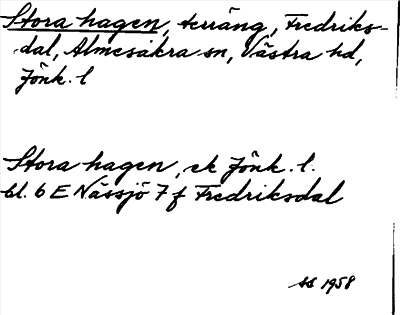 Stora hagen, terräng, Fredriks-
dal, Almesåkra sn, Västra hd,
Jönk. l
Stora hagen, ek Jönk. l.
bl. 6 E Nässjö 7 f Fredriksdal
SS 1958